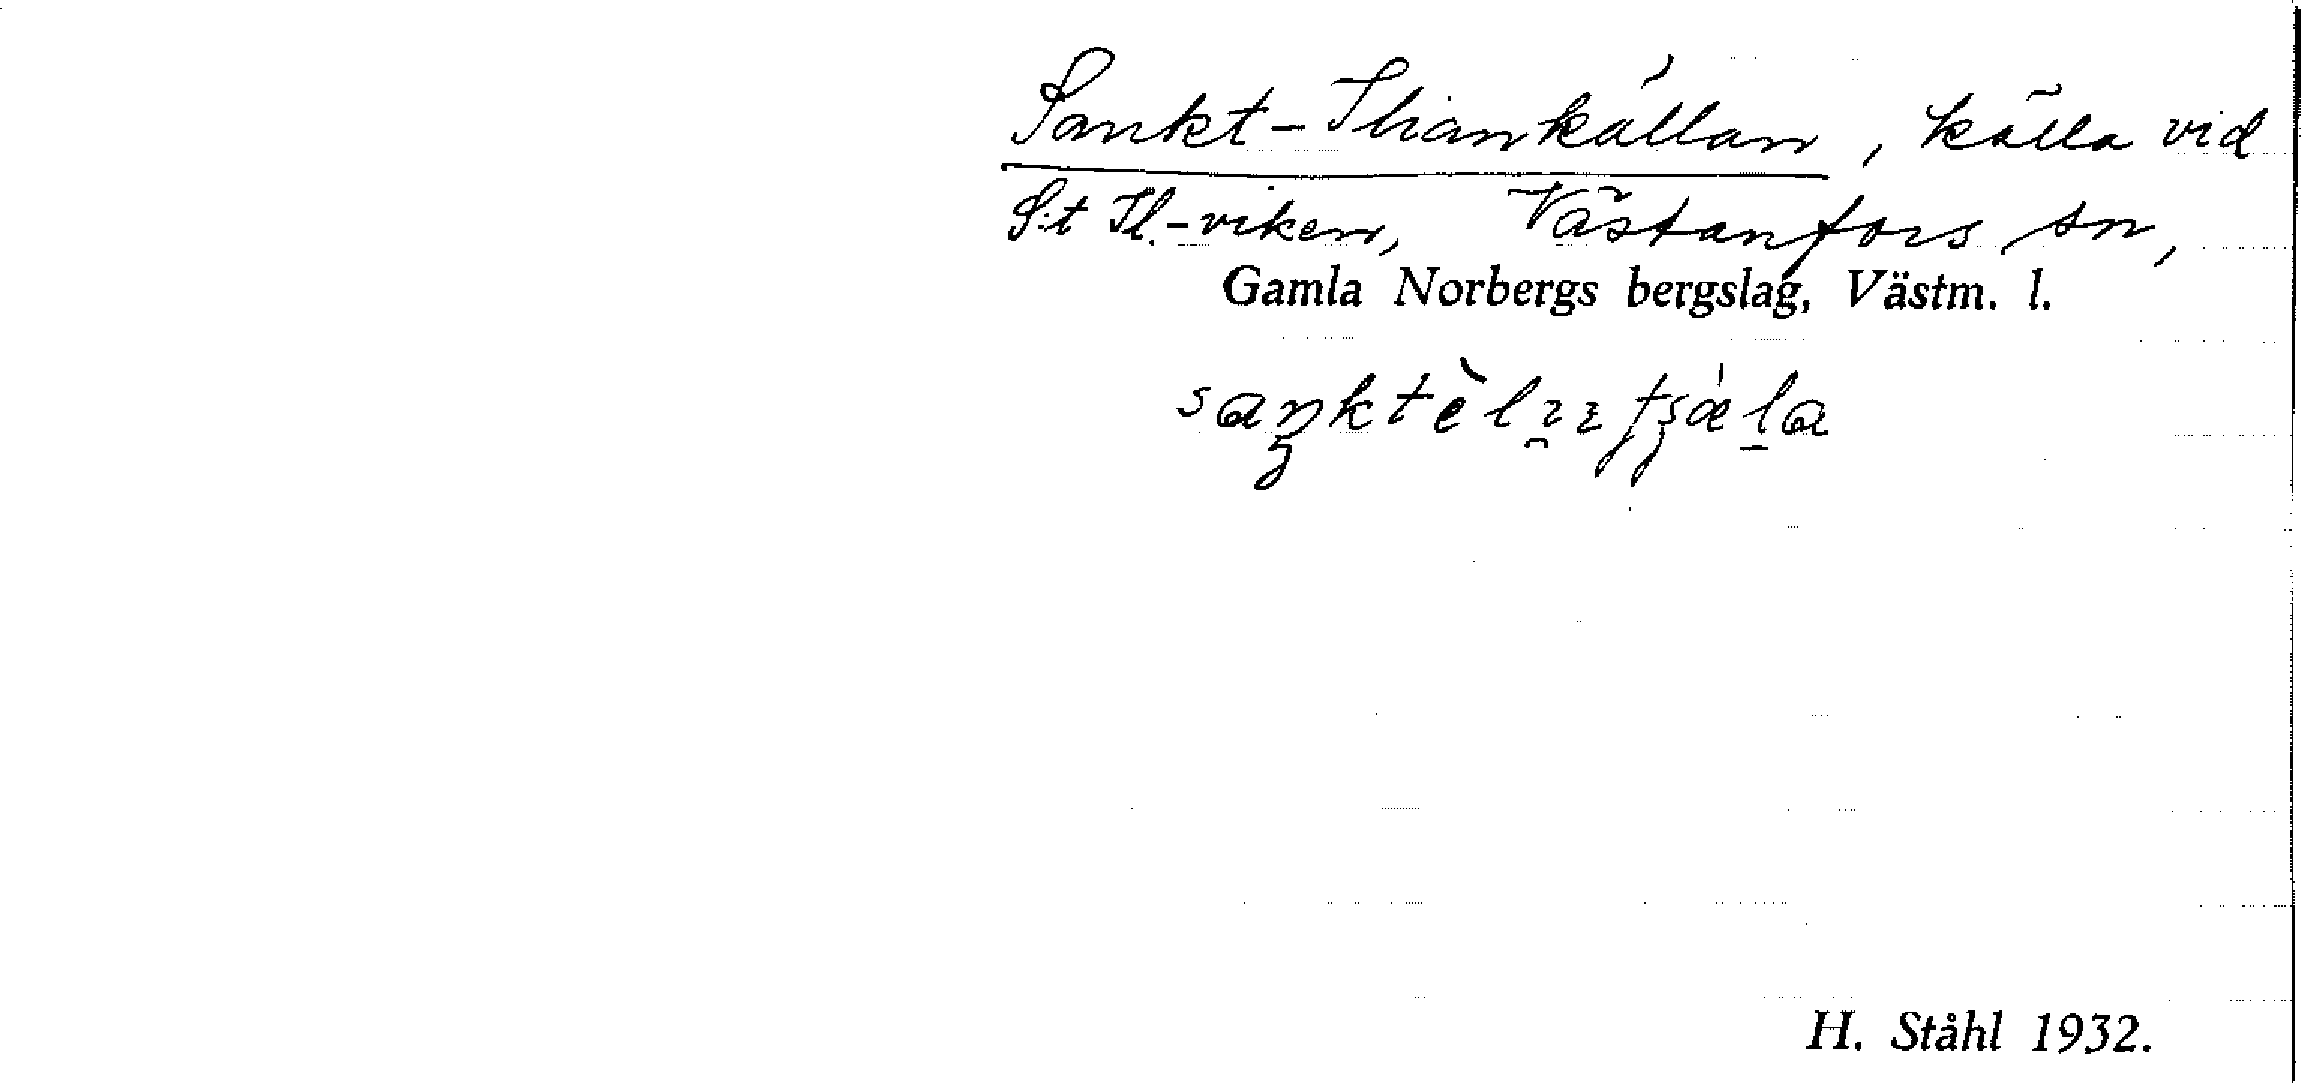 Sankt-Iliankällan, källa vid
S:t Il.-viken, Västanfors sn,
Gamla Norbergs bergslag, Västm. l.
H. Ståhl 1932.